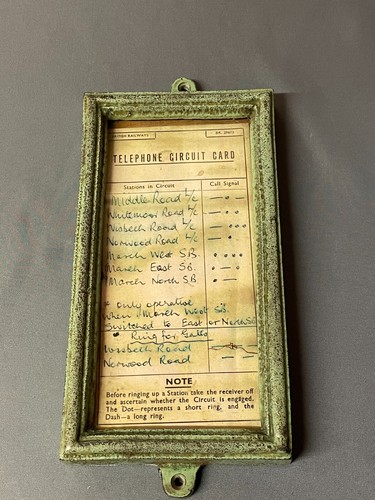 BRITISH RAILWAYS
TELEPHONE CIRCUIT CARD
Stations in Circuit Call Signal
Middle Road L/C
Whitemoor Road L/C
Wisbech Road L/C
Norwood Road L/C
March West S.B.
March East S.B.
* March North S.B.
* only operative
when March West S.B.
Switched to East or North S.B
Ring for Gates
Wisbech Road
Norwood Road
NOTE
Before ringing up a Station take the receiver off
and ascertain whether the Circuit is engaged.
The Dot—represents a short ring, and the
Dash—a long ring.